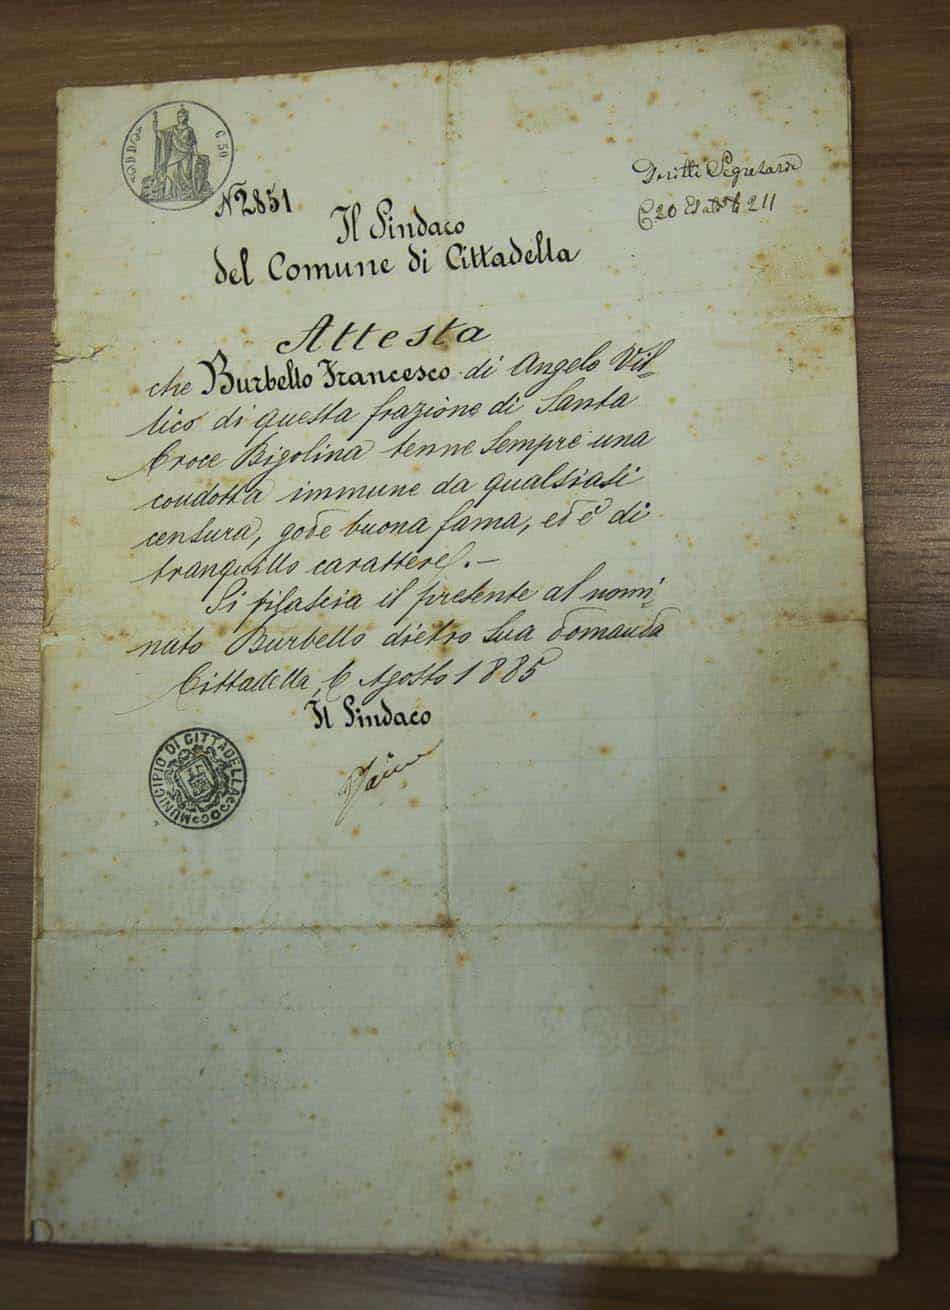 C. 50
N 2851
Diritti Segretaria
C 20 211
Il Sindaco
del Comune di Cittadella
Attesta
che Burbello Francesco di Angelo Vil-
lico di questa frazione di Santa
Croce Bigolina tenne sempre una
condotta immune da qualsiasi
censura, gode buona fama, ed è di
tranquillo carattere. –
Si rilascia il presente al nomi-
nato Burbello dietro sua domanda
Cittadella, 6 Agosto 1885
Il Sindaco
MUNICIPIO DI CITTADELLA